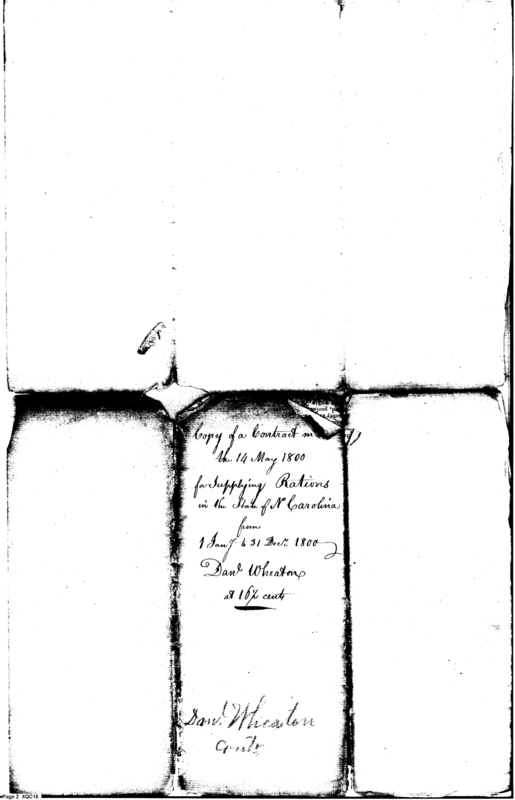 Copy of a Contract m
the 14 May 1800
for Supplying Rations
in the State of N Carolina
from
1 Jany to 31 Decr. 1800
Danl Wheaton
at 16½ cents
Danl. Wheaton
Contr
Page 2 XQC16